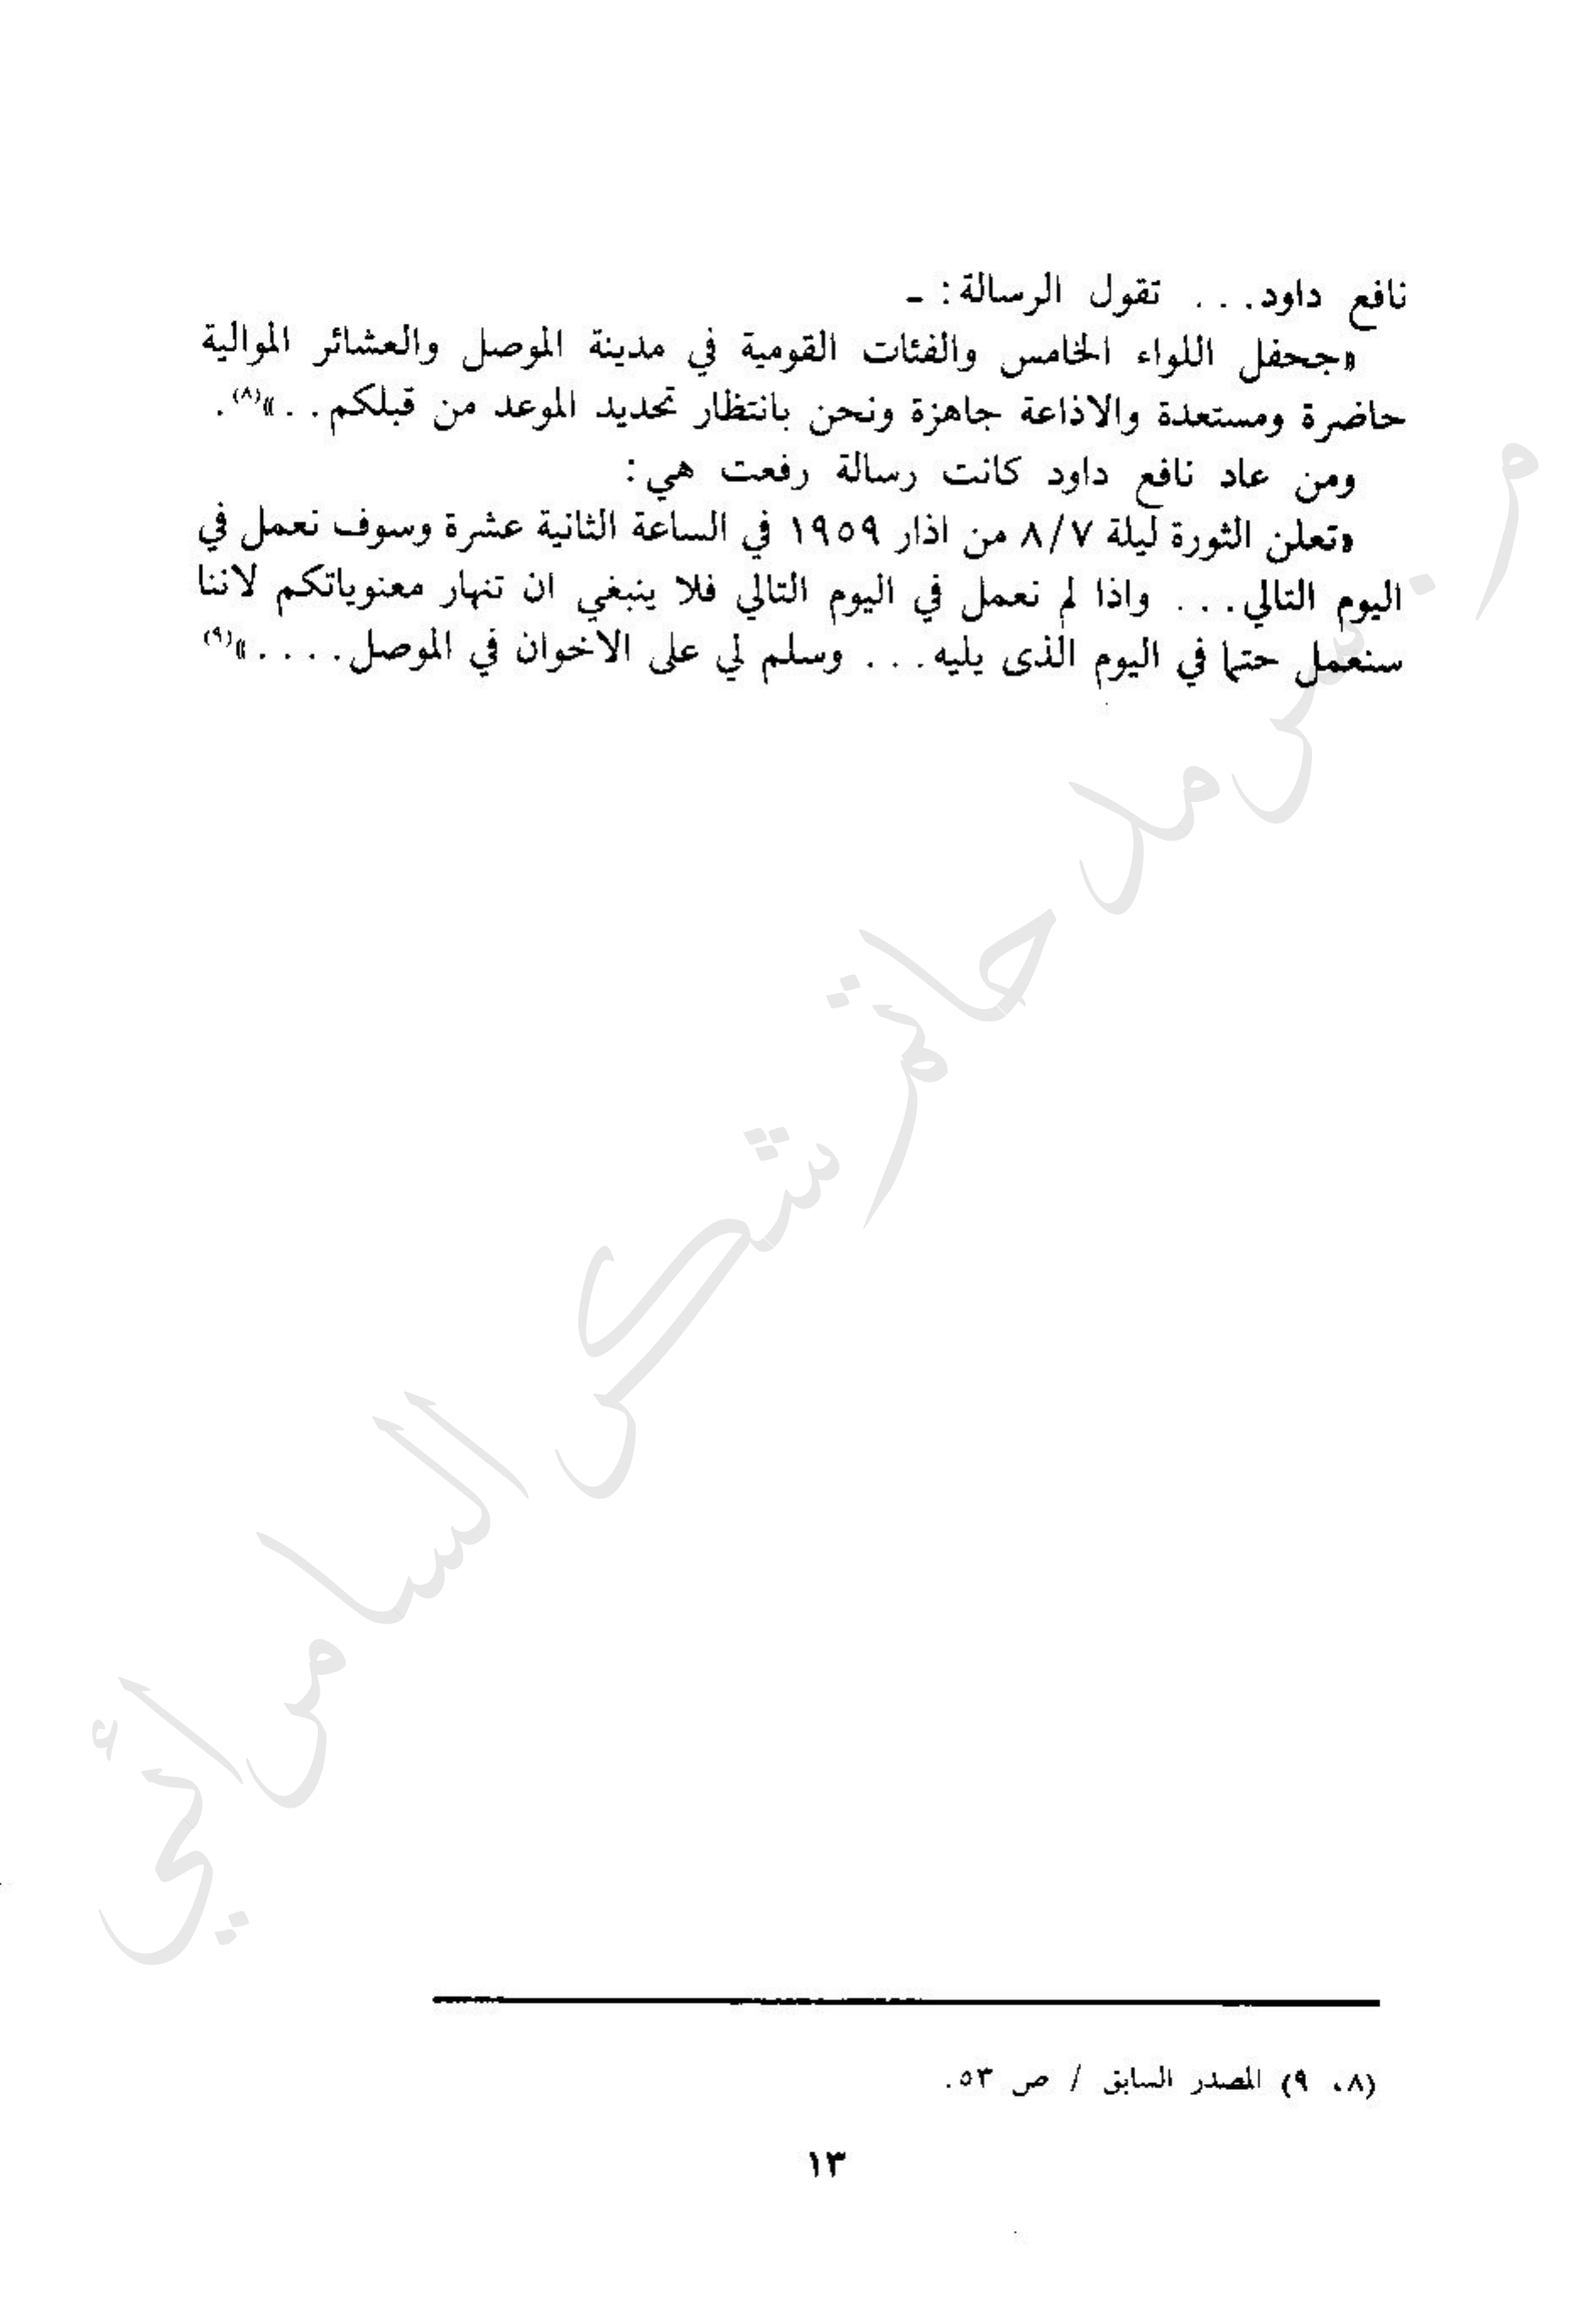 نافع داود. . . تقول الرسالة : ـ
«جحفل اللواء الخامس والفئات القومية في مدينة الموصل والعشائر الموالية
حاضرة ومستعدة والاذاعة جاهزة ونحن بانتظار تحديد الموعد من قبلكم . . .»(٨) .
ومن عاد نافع داود كانت رسالة رفعت هي :
«تعلن الثورة ليلة ٨/٧ من اذار ١٩٥٩ في الساعة الثانية عشرة وسوف نعمل في
اليوم التالي . . . واذا لم نعمل في اليوم التالي فلا ينبغي ان تنهار معنوياتكم لاننا
سنعمل حتما في اليوم الذى يليه . . . وسلم لي على الاخوان في الموصل . . . .»(٩)
م. سرمد حاتم شكر السامرائي
(٨، ٩) المصدر السابق / ص ٥٣ .
١٣